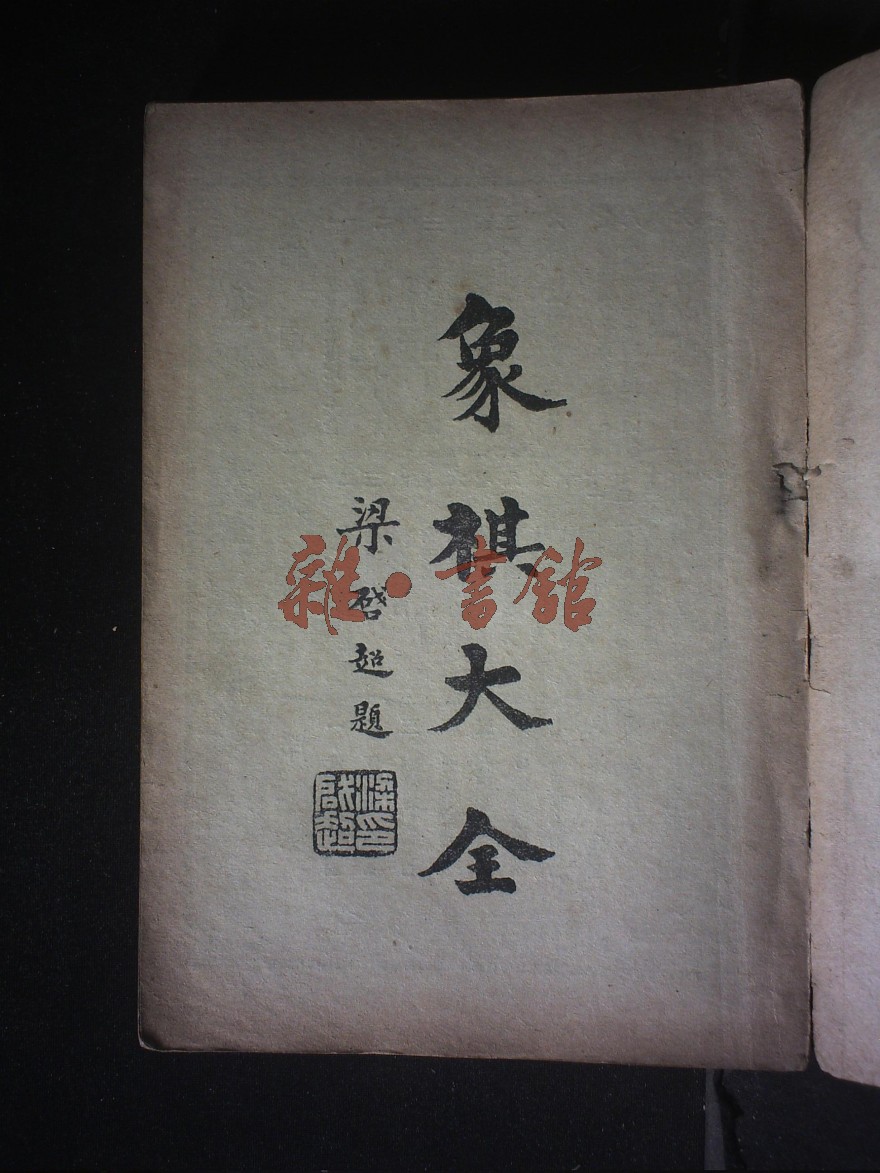 象棋大全
梁啓超題
梁啟超印
雜·書館